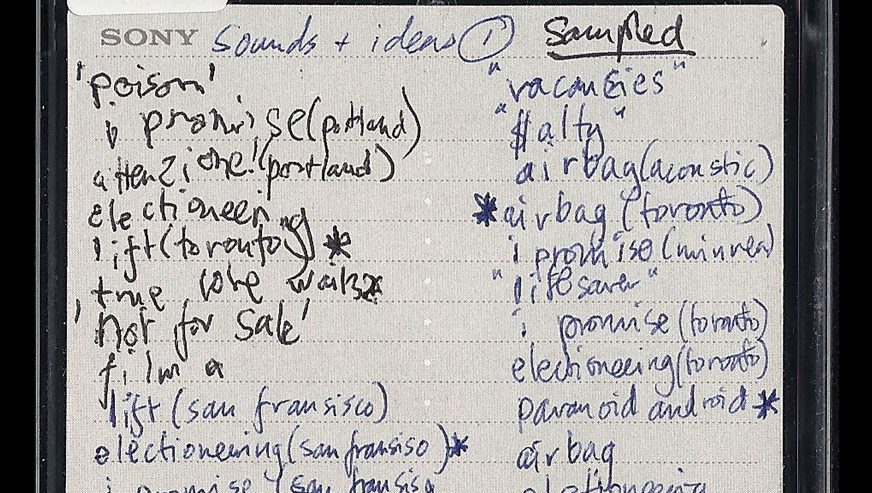 SONY sounds + ideas ① Sampled
'poison'
i promise (portland)
attenzione! (portland)
electioneering
lift (toronto) *
true love waits
'not for sale'
film a
lift (san fransisco)
electioneering (san fransiso) *
i promise (san fransis
"vacancies"
"$alty"
airbag (acoustic)
* airbag (toronto)
i promise (minnea)
"lifesaver"
i promise (toronto)
electioneering (toronto)
paranoid android *
airbag
eletioneering